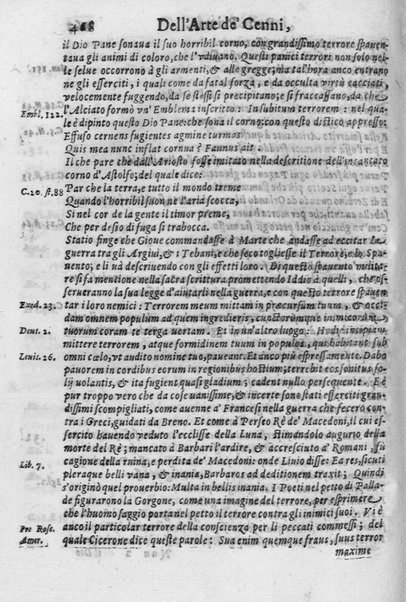 468 Dell'Arte de' Cenni,
il Dio Pane sonaua il suo horribil corno, con grandissimo terrore spauen-
taua gli animi di coloro, che l'vdiuano. Questi panici terrori non solo nel-
le selue occorrono à gli armenti, & alle gregge; ma tal'hora anco entrano
ne gli esserciti, i quali come da fatal forza, e da occulta virtù cacciati,
velocemente fuggendo, da se stessi si precipitano, e si fraccassano, da che
Embl. 122. l'Alciato formò vn' Emblema inscritto: In subitum terrorem: nel qua-
le è dipinto questo Dio Pane che sona il corno: con questo distico appresso:
Effuso cernens fugientes agmine turmas
Quis mea nunc inflat cornua? Faunus ait.
Il che pare che dall'Ariosto fosse imitato nella descritione dell'incantato
corno d'Astolfo; del quale dice:
C. 20. st. 88 Par che la terra, e tutto il mondo treme
Quando l'horribil suon ne l'aria scocca,
Sì nel cor de la gente il timor preme,
Che per desio di fuga si trabocca.
Statio finge che Gioue commandasse à Marte che andasse ad eccitar la
guerra tra gli Argiui, & i Tebani, e che seco togliesse il Terrore, e lo Spa-
uento, e li và descriuendo con gli effetti loro. Di questo spauento milita-
re si fa mentione nella sacra scrittura promettendo Iddio à quelli, che os-
seruanno la sua legge d'aintarli nella guerra, e con questo terrore spauen-
Exod. 23. tar i loro nemici: Terrorem meum mittam in præcursum tuum, & occi-
dam omnem populum ad quem ingredieris, cunctorumque inimicorum
Deut. 2. tuorum coram te terga uertam. Et in un'altro luogo: Hodie incipiam
mittere terrorem, atque formidinem tuum in populos, qui habitant sub
Leuit. 26. omni cœlo, vt audito nomine tuo, paueant. Et anco più espressamente. Dabo
pauorem in cordibus eorum in regionibus hostium; terrebit eos sonitus fo-
lij uolantis, & ita fugient quasi gladium; cadent nullo persequente. E è
pur troppo vero che da cose uanissime, & incerte sono stati esserciti gran-
dissimi scompigliati, come auenne a' Francesi nella guerra che fecero con-
tra i Greci, guidati da Breno. Et come à Perseo Rè de' Macedoni, il cui es-
sercito hauendo veduto l'ecclisse della Luna, stimandolo augurio della
morte del Rè; mancato à Barbari l'ardire, & accresciuto a' Romani, fu
Lib. 7. cagione della ruina, e perdita de' Macedoni: onde Liuio disse: Ea res, sicuti
pleraque belli uana, & inania, Barbaros ad deditionem traxit; Quindi
s'originò quel prouerbio: Multa in bellis inania, e i Poeti nel petto di Palla-
de figurarono la Gorgone, come una imagine del terrore, per esprimere
che l'huomo saggio porta nel petto il terrore contra gli inimici suoi. Vi è
Pro Rosc. anco il particolar terrore della conscienza per li peccati commessi; del
Amer. quale Cicerone dice queste parole: Sua enim quemque fraus, suus terror
maxime